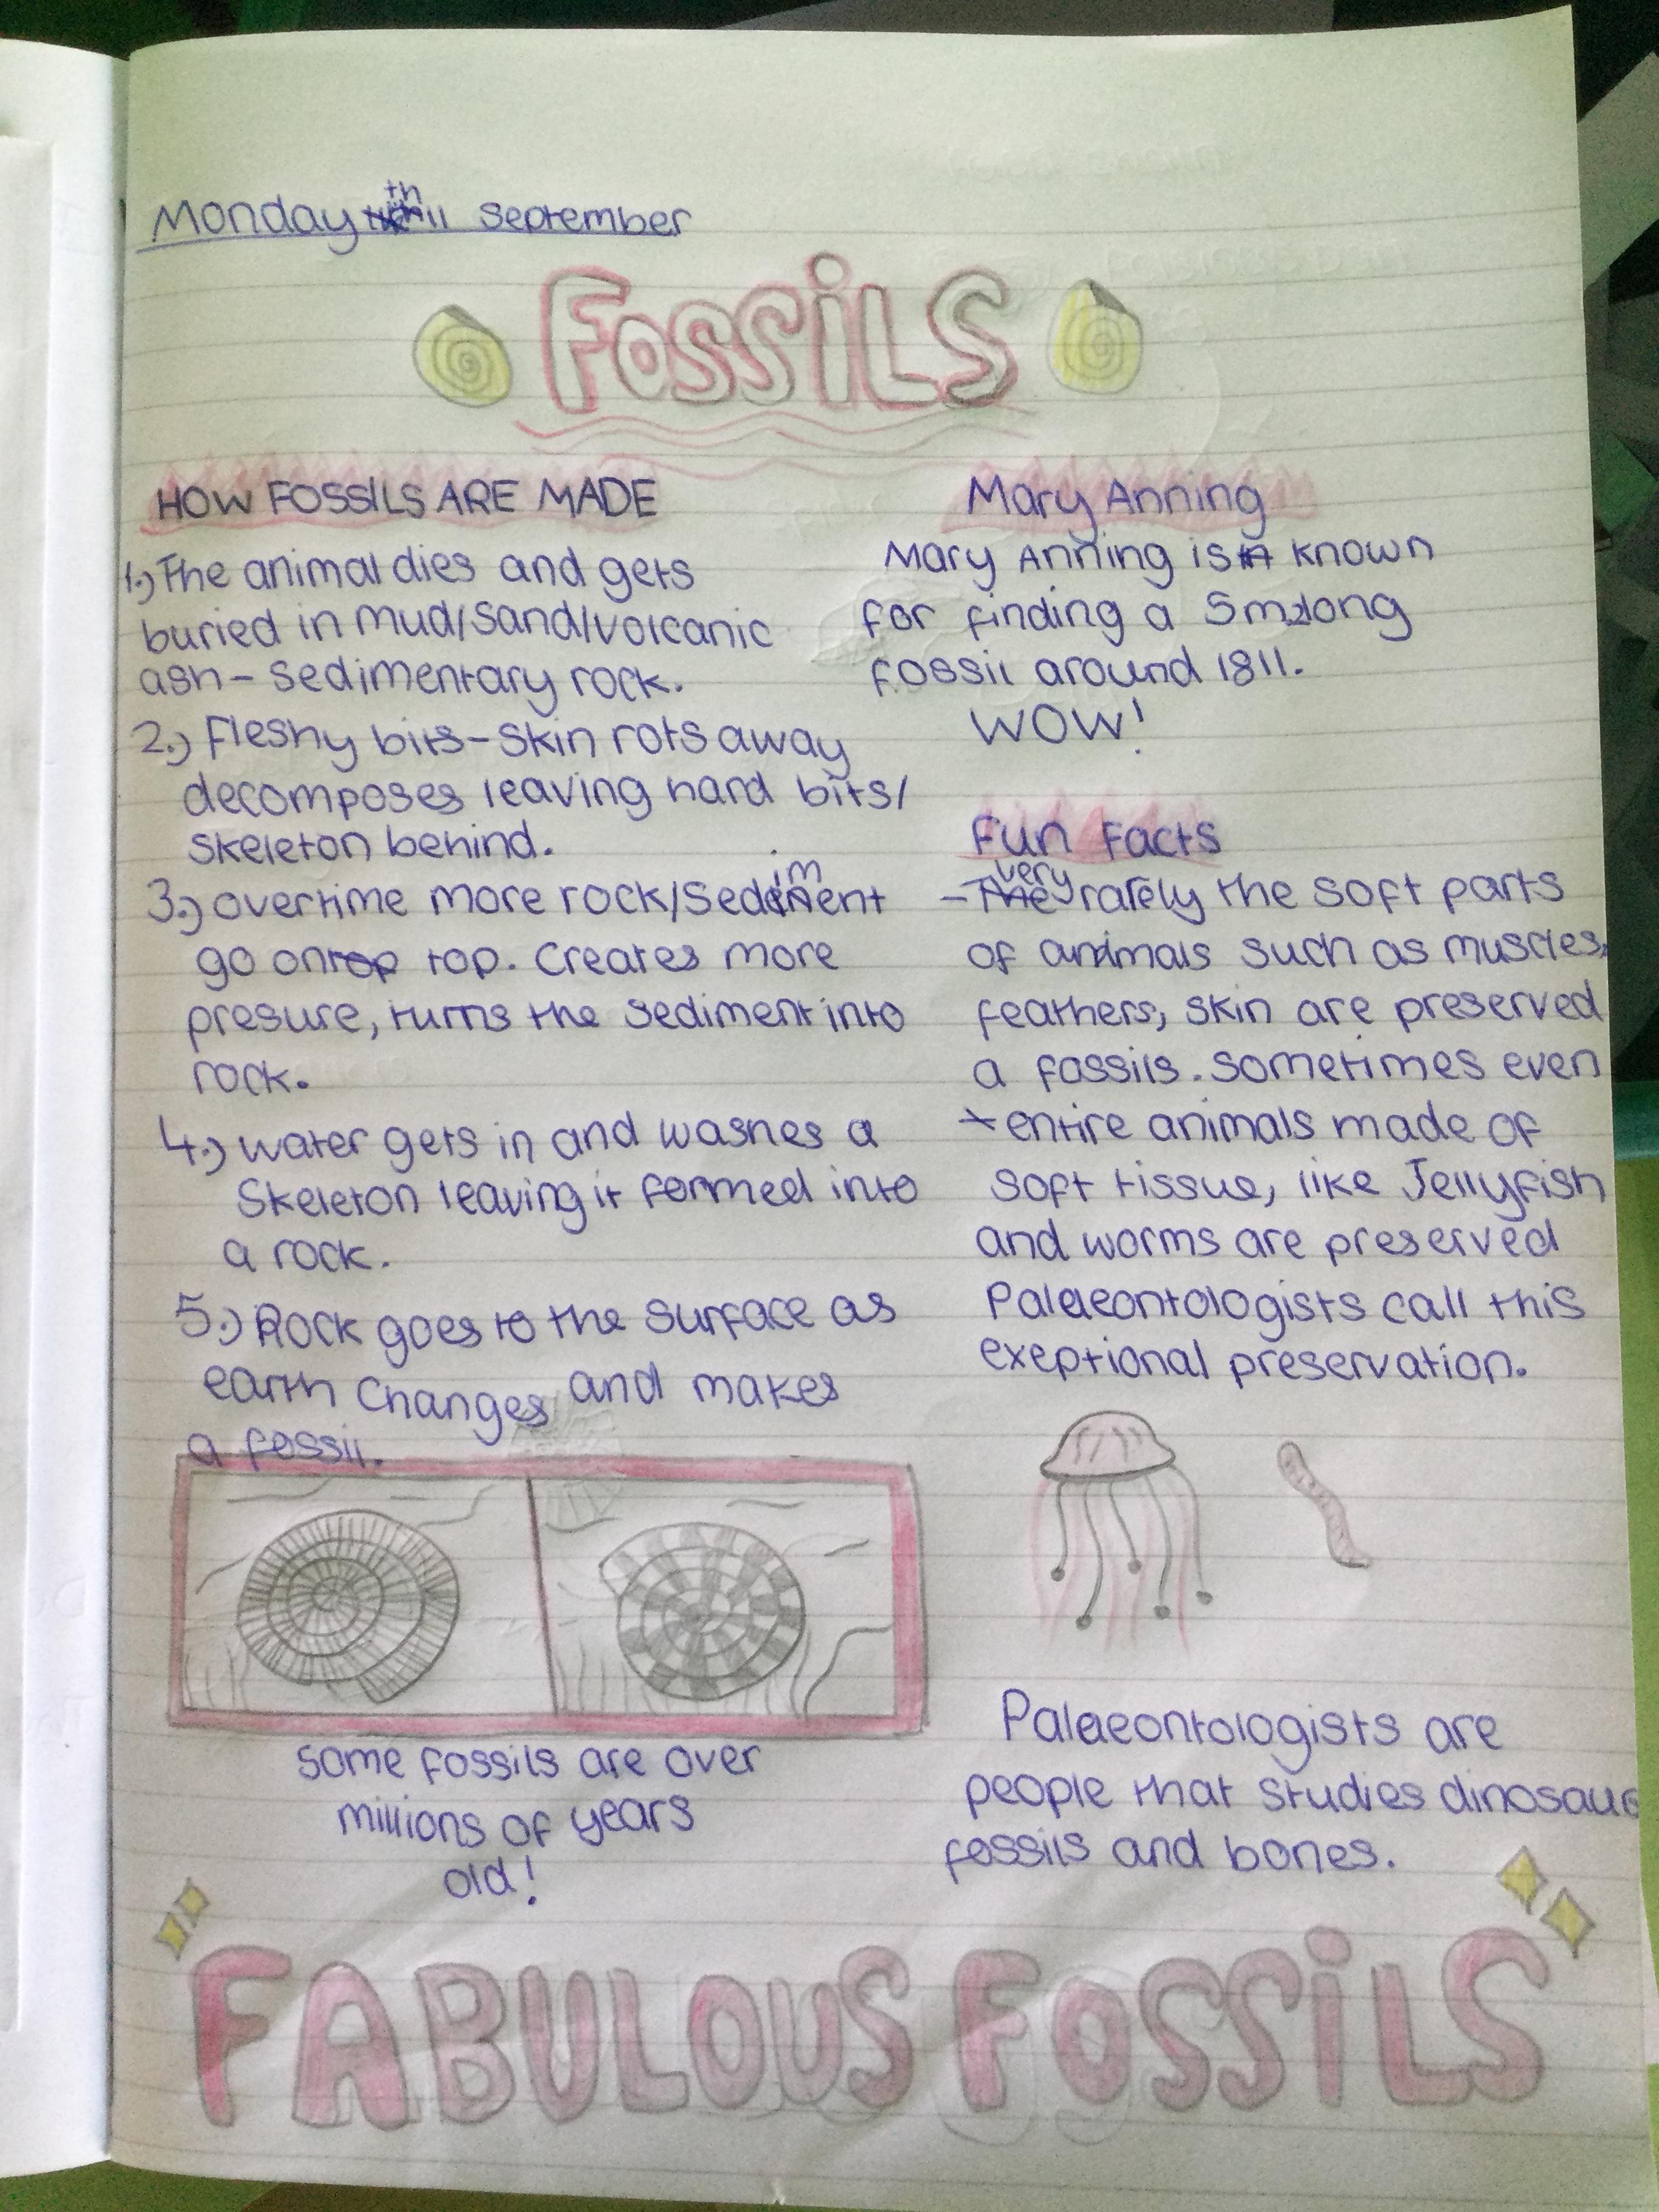 Monday 11th September
FOSSiLS
HOW FOSSILS ARE MADE
1.) The animal dies and gets
buried in mud/sand/volcanic
ash- sedimentary rock.
2.) Fleshy bits-skin rots away
decomposes leaving hard bits/
skeleton behind.
3.) overtime more rock/sediment
go on top. Creates more
presure, turns the sediment into
rock.
4.) water gets in and washes a
skeleton leaving it formed into
a rock.
5.) Rock goes to the surface as
earth changes and makes
a fossil.
some fossils are over
millions of years
old!
Mary Anning
Mary Anning is known
for finding a 5m long
fossil around 1811.
WOW!
Fun Facts
- very rarely the soft parts
of animals such as muscles,
feathers, skin are preserved
a fossils. sometimes even
entire animals made of
soft tissue, like Jellyfish
and worms are preserved
Palaeontologists call this
exeptional preservation.
Palaeontologists are
people that studies dinosaur
fossils and bones.
FABULOUS FOSSiLS